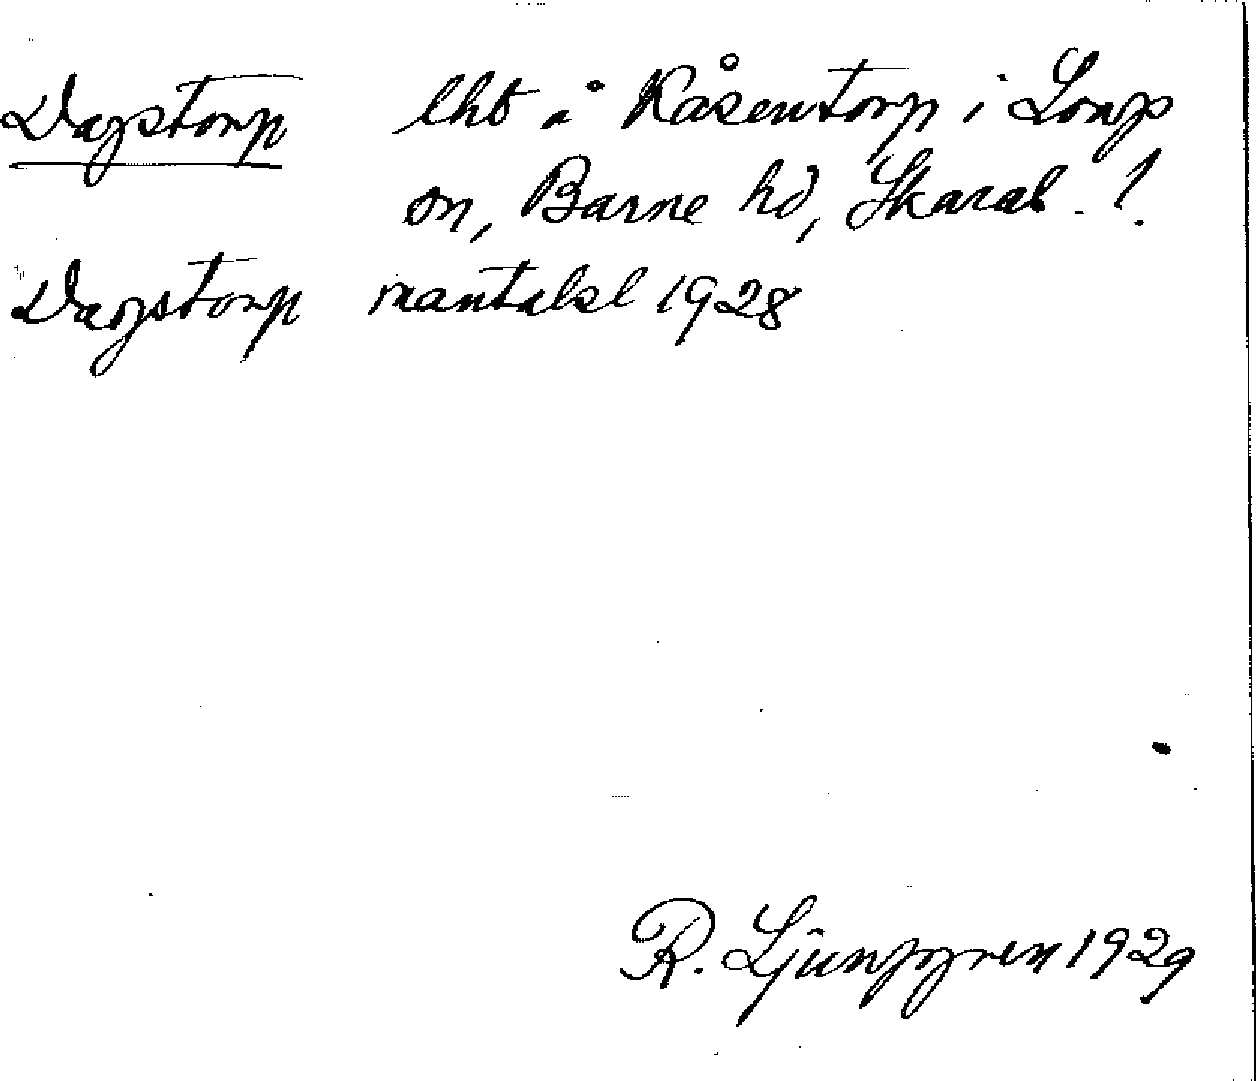 Dagstorp lht å Råsentorp i Long
sn, Barne hd, Skarab. l.
Dagstorp mantalsl 1928
R. Ljunggren 1929